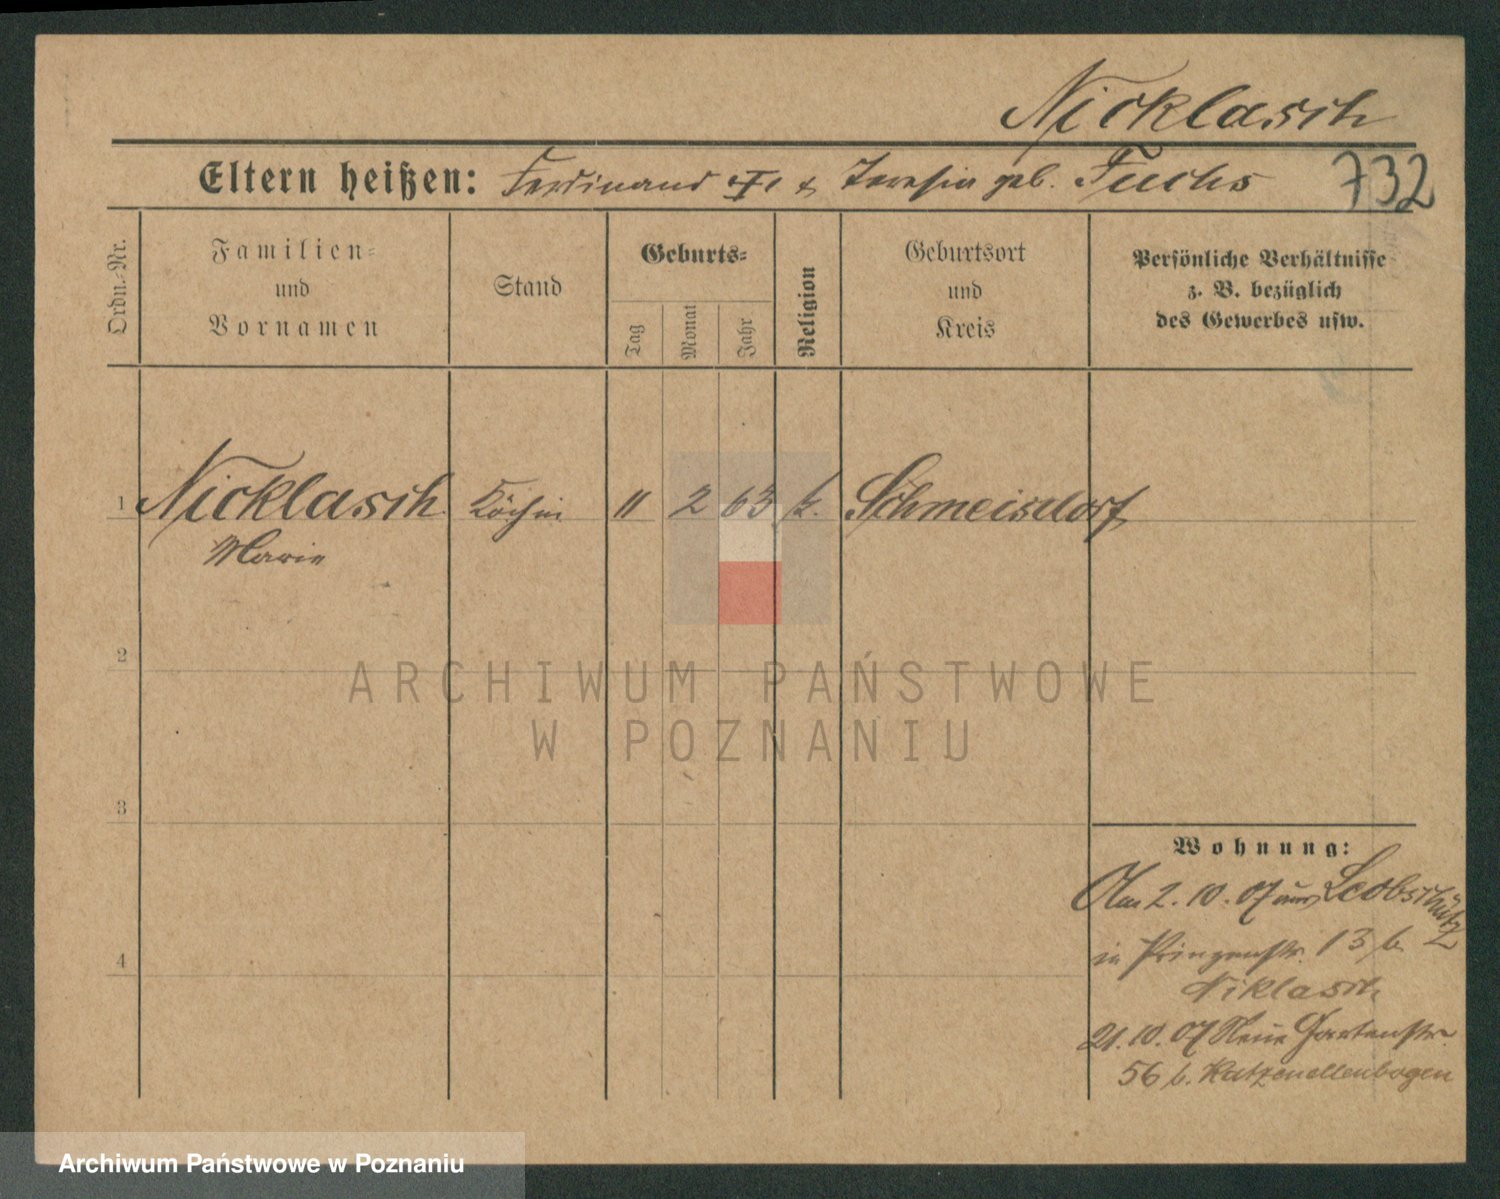 Nicklasch
732
Eltern heißen: Ferdinand u. Teresia geb. Fuchs
Ordn.-Nr.
Familien=
und
Vornamen
Stand
Geburts=
Tag
Monat
Jahr
Religion
Geburtsort
und
Kreis
Persönliche Verhältnisse
z. B. bezüglich
des Gewerbes usw.
1 Nicklasch Köchin 11 2 63 k. Schmeisdorf
Marie
2
ARCHIWUM PAŃSTWOWE
W POZNANIU
3
Wohnung:
Am 2. 10. 07 aus Leobschütz
in Prinzenstr. 13 b.
Niklasch
21. 10. 07 Neue Gartenstr.
4
56 b. Katzenellenbogen
Archiwum Państwowe w Poznaniu